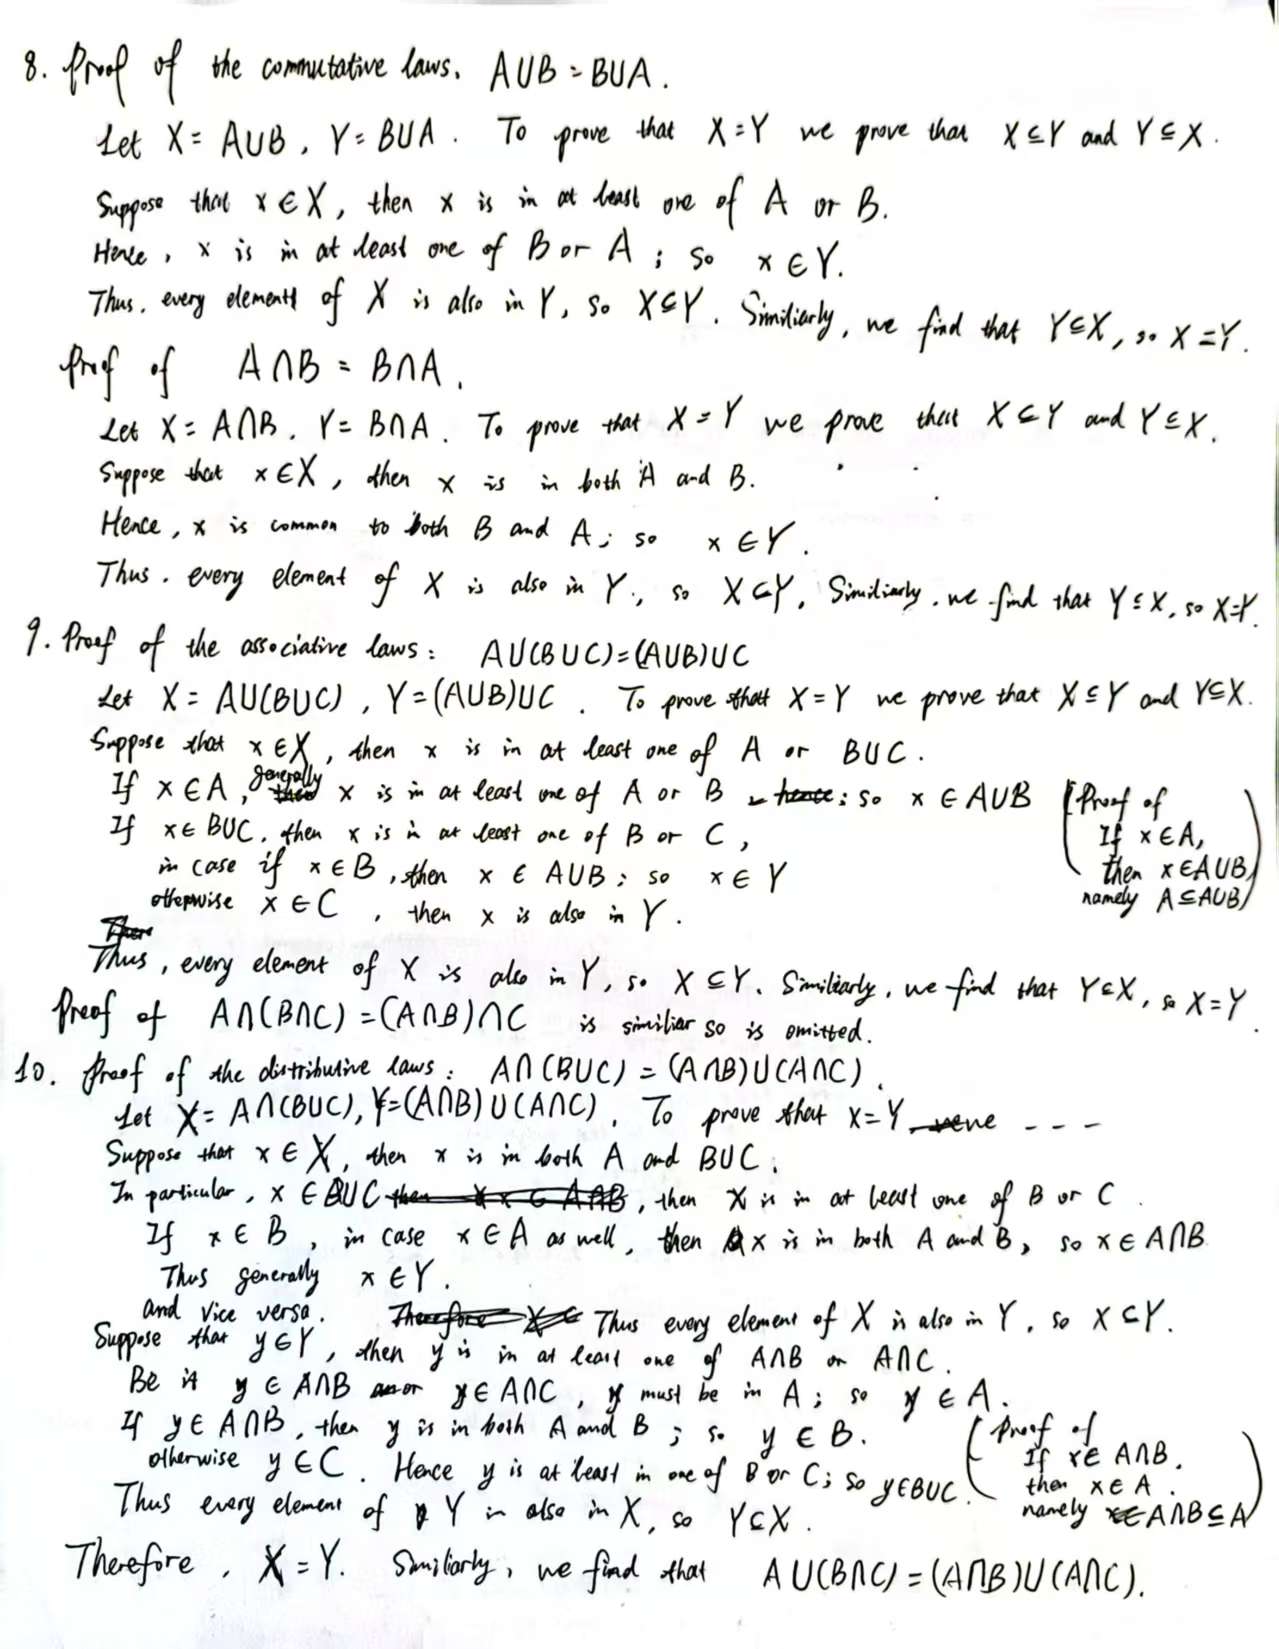 8. Proof of the commutative laws. A∪B = B∪A.
Let X = A∪B, Y = B∪A. To prove that X = Y we prove that X ⊆ Y and Y ⊆ X.
Suppose that x ∈ X, then x is in at least one of A or B.
Hence, x is in at least one of B or A; so x ∈ Y.
Thus, every element of X is also in Y, so X ⊆ Y. Similiarly, we find that Y ⊆ X, so X = Y.
Proof of A∩B = B∩A.
Let X = A∩B. Y = B∩A. To prove that X = Y we prove that X ⊆ Y and Y ⊆ X.
Suppose that x ∈ X, then x is in both A and B.
Hence, x is common to both B and A; so x ∈ Y.
Thus. every element of X is also in Y, so X ⊆ Y. Similiarly. we find that Y ⊆ X, so X = Y.
9. Proof of the associative laws: A∪(B∪C) = (A∪B)∪C
Let X = A∪(B∪C), Y = (A∪B)∪C. To prove that X = Y we prove that X ⊆ Y and Y ⊆ X.
Suppose that x ∈ X, then x is in at least one of A or B∪C.
If x ∈ A, generally x is in at least one of A or B; so x ∈ A∪B
If x ∈ B∪C, then x is in at least one of B or C,
in case if x ∈ B, then x ∈ A∪B; so x ∈ Y
otherwise x ∈ C, then x is also in Y.
(Proof of
If x ∈ A,
then x ∈ A∪B,
namely A ⊆ A∪B)
Thus, every element of X is also in Y, so X ⊆ Y. Similiarly, we find that Y ⊆ X, so X = Y.
Proof of A∩(B∩C) = (A∩B)∩C is similiar so is omitted.
10. Proof of the distributive laws: A∩(B∪C) = (A∩B)∪(A∩C).
Let X = A∩(B∪C), Y = (A∩B)∪(A∩C). To prove that X = Y - - -
Suppose that x ∈ X, then x is in both A and B∪C.
In particular, x ∈ B∪C, then x is in at least one of B or C.
If x ∈ B, in case x ∈ A as well, then x is in both A and B, so x ∈ A∩B
Thus generally x ∈ Y.
and vice versa. Thus every element of X is also in Y, so X ⊆ Y.
Suppose that y ∈ Y, then y is in at least one of A∩B or A∩C.
Be it y ∈ A∩B or y ∈ A∩C, y must be in A; so y ∈ A.
If y ∈ A∩B, then y is in both A and B; so y ∈ B.
otherwise y ∈ C. Hence y is at least in one of B or C; so y ∈ B∪C.
(Proof of
If x ∈ A∩B.
then x ∈ A.
namely A∩B ⊆ A)
Thus every element of Y is also in X, so Y ⊆ X.
Therefore, X = Y. Similiarly, we find that A∪(B∩C) = (A∩B)∪(A∩C).